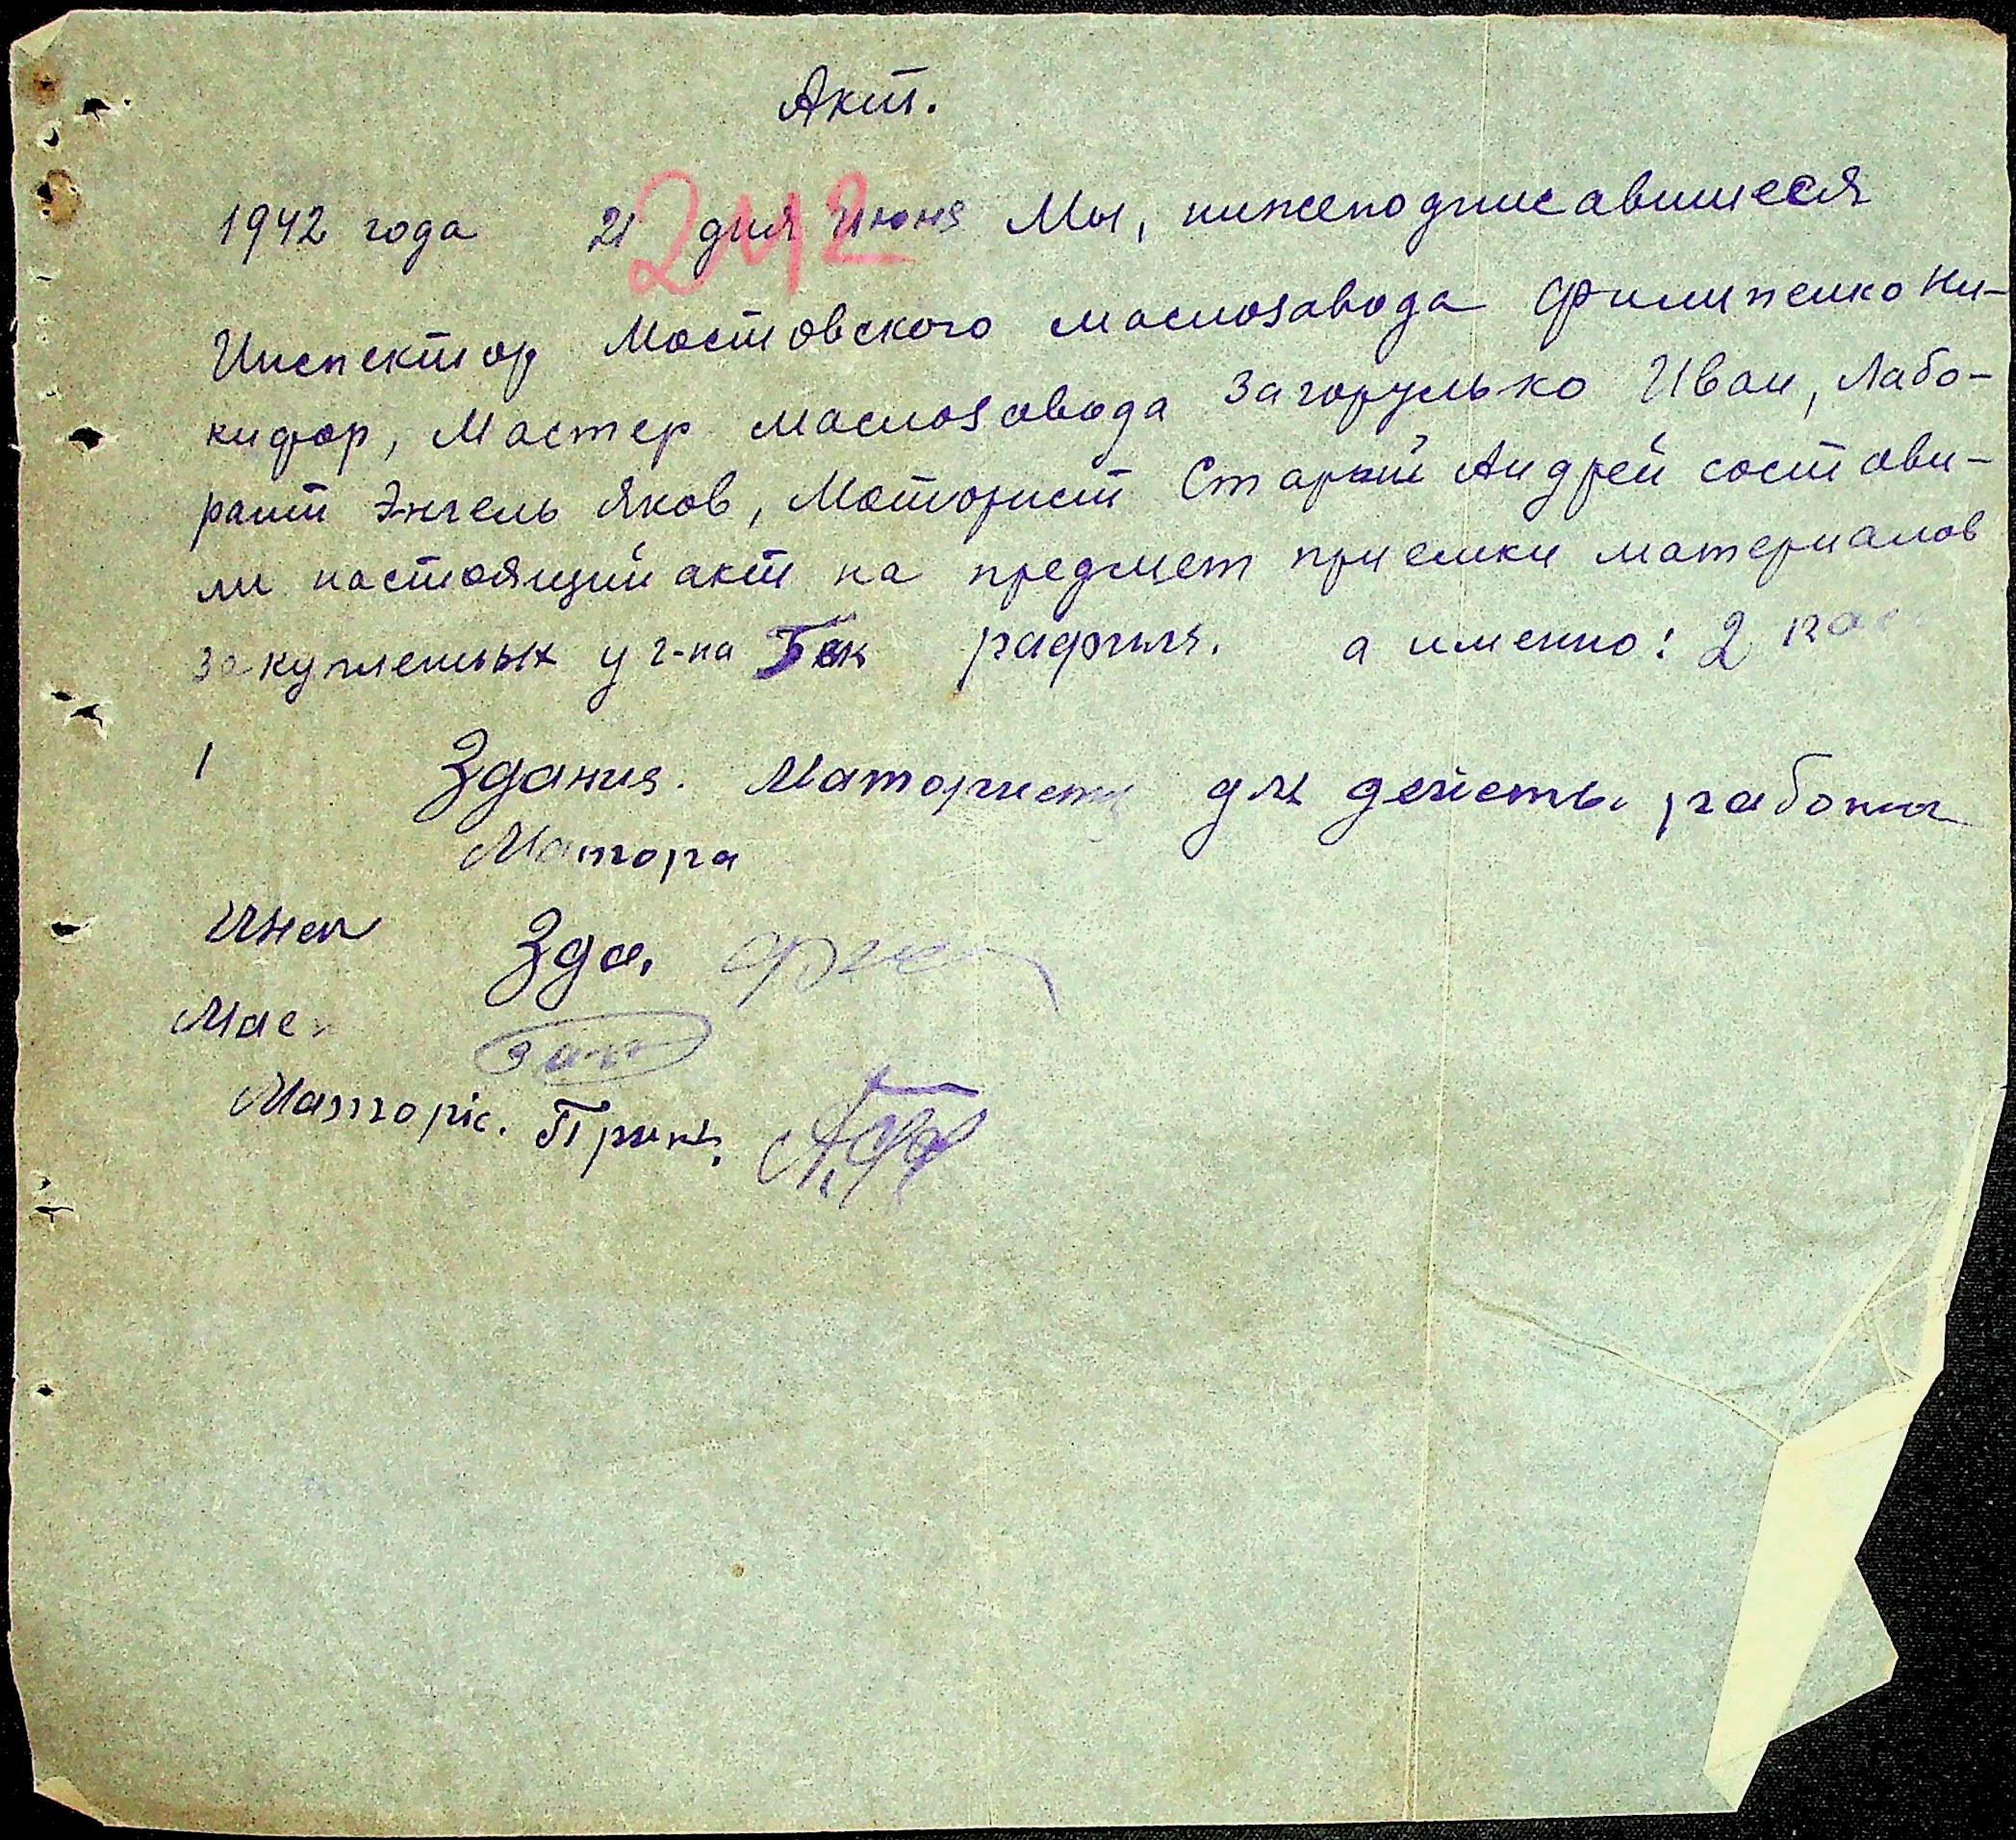 Акт.
242
1942 года 21 дня Июня Мы, нижеподписавшиеся
Инспектор Мостовского маслозавода Филипенко Ни-
кифор, Мастер маслозавода Загорулько Иван, Лабо-
рант Энгель Яков, Моторист Старый Андрей состави-
ли настоящий акт на предмет приемки материалов
закупленных у г-на Бек а именно: 2
1 Здания. Матористу для работы
Матора
Инсп Зда.
Мас Заг
Маторіс. Прин.